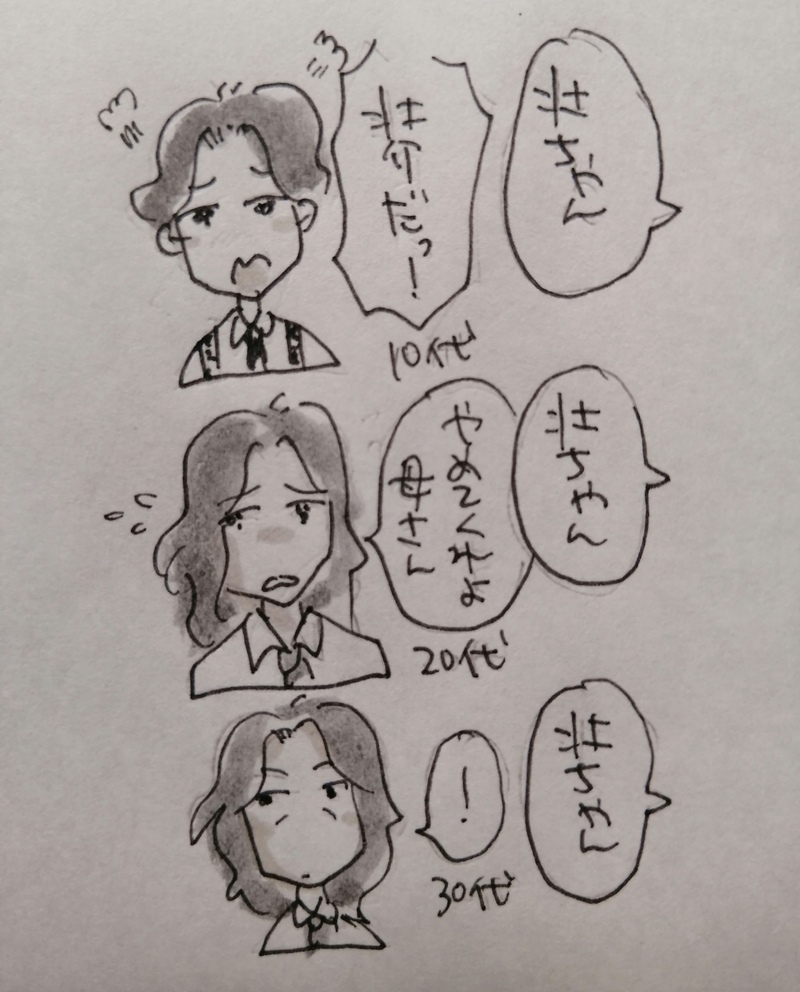 壮ちゃん
壮介だっ!
10代
壮ちゃん
やめてくれよ
母さん
20代
壮ちゃん
!
30代